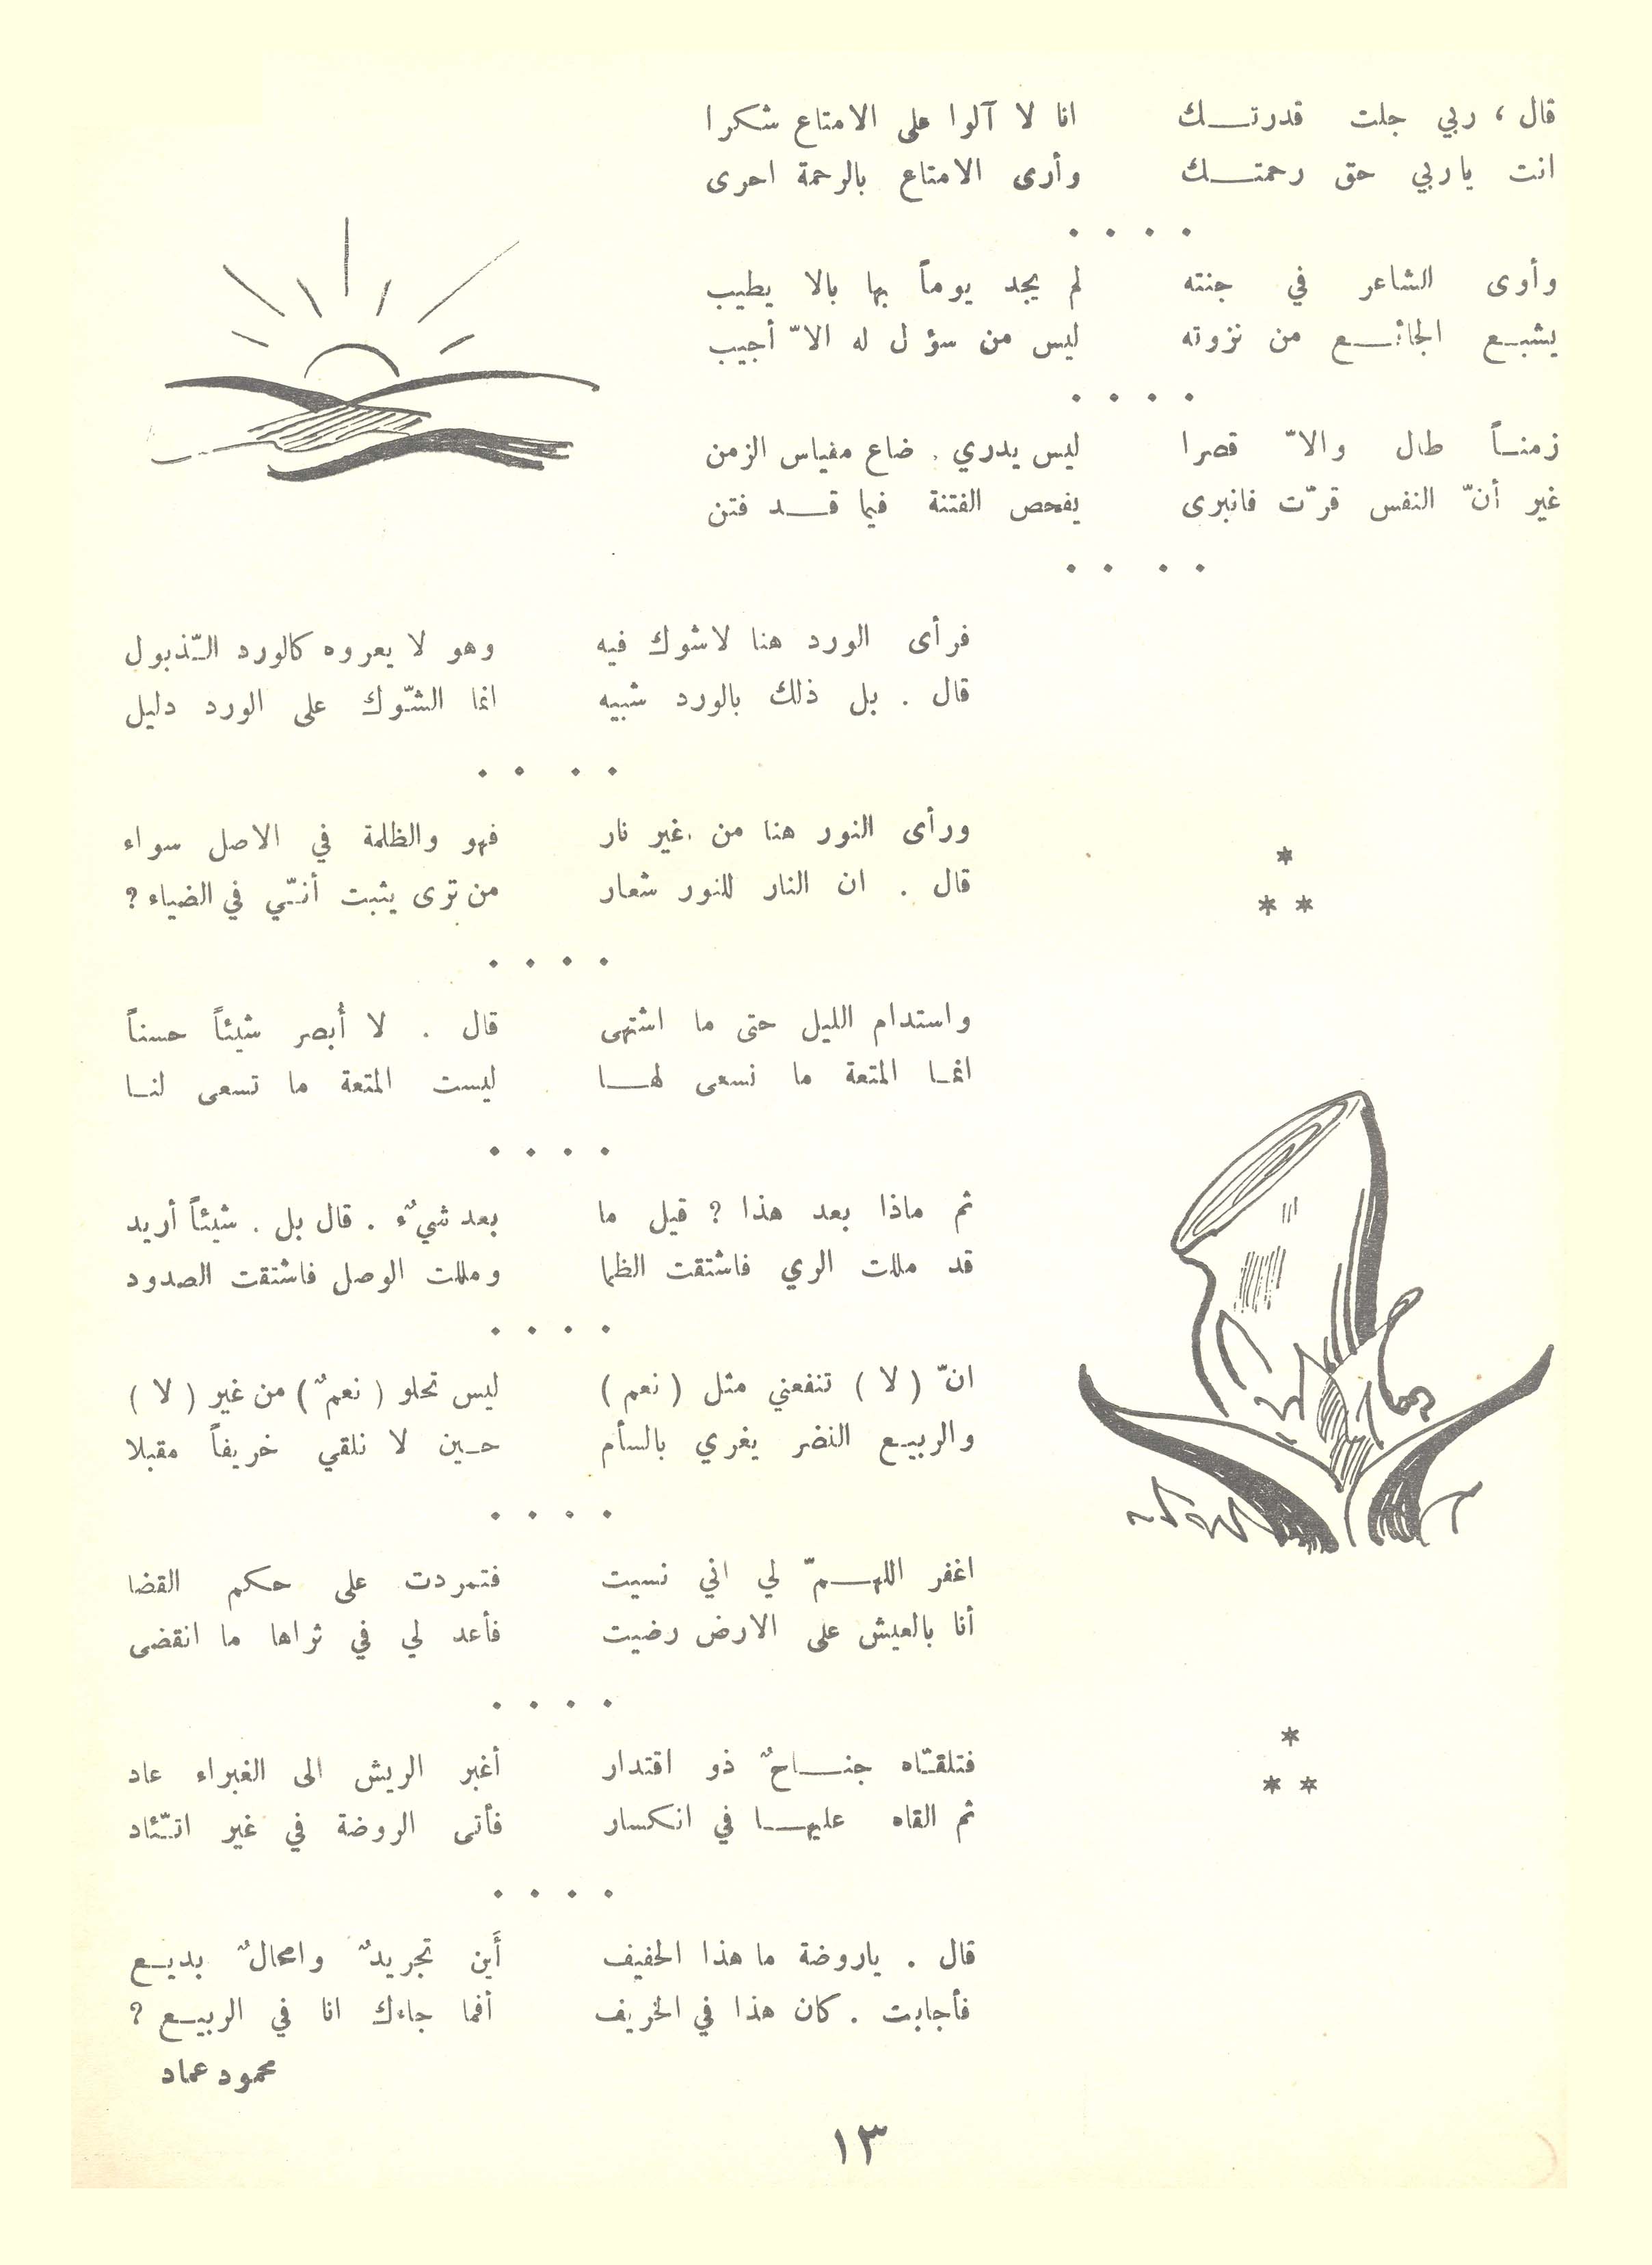 قال ، ربي جلت قدرتـــك انا لا آلوا على الامتاع شكرا
انت ياربي حق رحمتـــك وأرى الامتاع بالرحمة احرى
. . . .
وأوى الشاعر في جنته لم يجد يوماً بها بالا يطيب
يشبـع الجائـــع من نزوته ليس من سؤل له الاّ أجيب
. . . .
زمنــاً طال والاّ قصرا ليس يدري . ضاع مقياس الزمن
غير أنّ النفس قرّت فانبرى يفحص الفتنة فيما قــد فتن
. . . .
فرأى الورد هنا لاشوك فيه وهو لا يعروه كالورد الـذّبول
قال . بل ذلك بالورد شبيه انما الشّوك على الورد دليل
. . . .
ورأى النور هنا من غير نار فهو والظلمة في الاصل سواء
قال . ان النار للنور شعار من ترى يثبت أنـّي في الضياء ؟
. . . .
*
* *
واستدام الليل حتى ما اشتهى قال . لا أُبصر شيئاً حسناً
انمـا المتعة ما نسعى لهــا ليست المتعة ما تسعى لنـا
. . . .
ثم ماذا بعد هذا ؟ قيل ما بعد شيءٌ . قال بل . شيئاً أريد
قد مللت الري فاشتقت الظما ومللت الوصل فاشتقت الصدود
. . . .
انّ ( لا ) تنفعني مثل ( نعم ) ليس تحلو ( نعمٌ ) من غير ( لا )
والربيـع النضر يغري بالسأم حـين لا نلقي خريفاً مقبلا
. . . .
اغفر اللهـــمّ لي اني نسيت فتمردت على حكم القضا
أنا بالعيش على الارض رضيت فأعد لي في ثراها ما انقضى
. . . .
*
* *
فتلقـّاه جنـــاحٌ ذو اقتدار أغبر الريش الى الغبراء عاد
ثم القاه عليهـــا في انكسار فأتى الروضة في غير اتـّئاد
. . . .
قال . ياروضة ما هذا الحفيف أَين تجريدٌ وامحالٌ بديـع
فأجابت . كان هذا في الخريف أفما جاءك انا في الربيـع ؟
محمود عماد
١٣